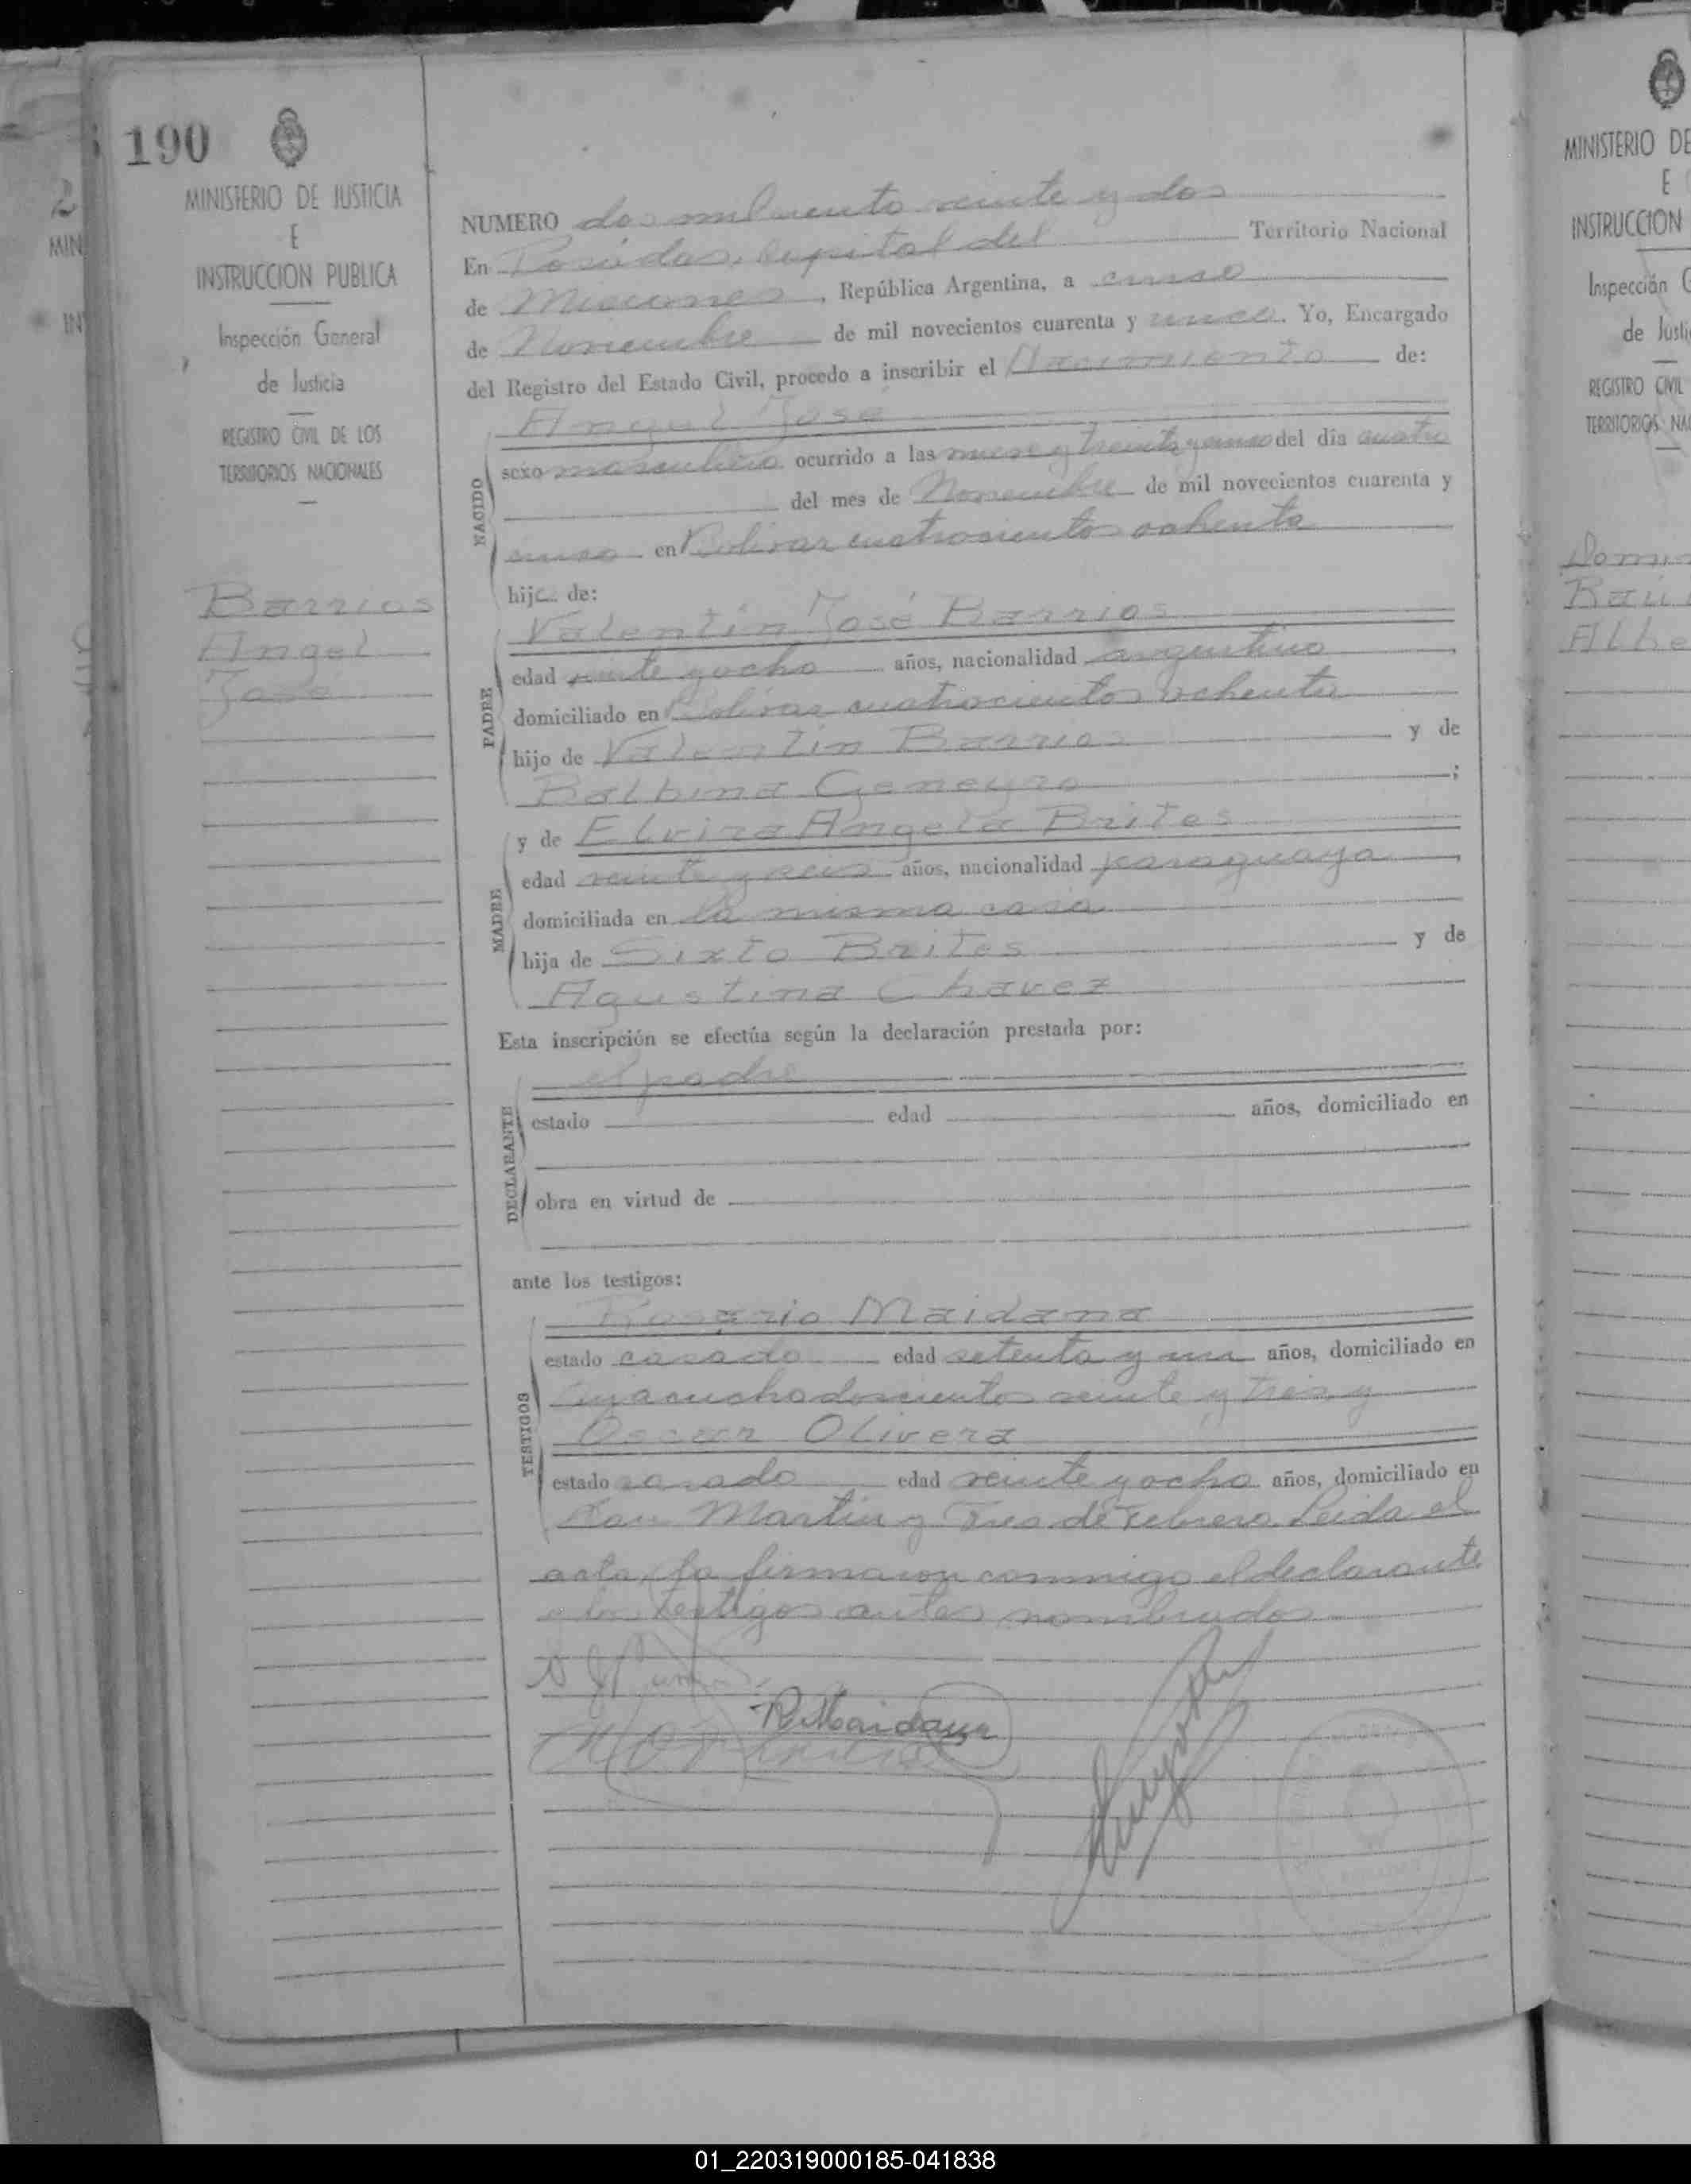 190
MINISTERIO DE JUSTICIA
E
INSTRUCCION PUBLICA
Inspección General
de Justicia
REGISTRO CIVIL DE LOS
TERRITORIOS NACIONALES
Barrios
Angel
José
NUMERO dos mil ciento veinte y dos
En Posadas, capital del Territorio Nacional
de Misiones, República Argentina, a cinco
de Noviembre de mil novecientos cuarenta y cinco. Yo, Encargado
del Registro del Estado Civil, procedo a inscribir el Nacimiento de:
Angel José
NACIDO
sexo masculino ocurrido a las nueve y treinta y cinco del día cuatro
del mes de Noviembre de mil novecientos cuarenta y
cinco en Bolivar cuatrocientos ochenta
hijo de:
Valentin José Barrios
PADRE
edad veinte y ocho años, nacionalidad argentino
domiciliado en Bolivar cuatrocientos ochenta
hijo de Valentin Barrios y de
Balbina Geneyro;
y de Elvira Angela Brites
MADRE
edad veinte y seis años, nacionalidad paraguaya
domiciliada en la misma casa
hija de Sixto Brites y de
Agustina Chavez
Esta inscripción se efectúa según la declaración prestada por:
el padre
DECLARANTE
estado edad años, domiciliado en
obra en virtud de
ante los testigos:
Rosario Maidana
TESTIGOS
estado casado edad setenta y un años, domiciliado en
Ayacucho doscientos veinte y tres y
Oscar Olivera
estado casado edad veinte y ocho años, domiciliado en
San Martin y Tres de Febrero. Leida el
acta, la firmaron conmigo el declarante
y los testigos antes nombrados
R. Maidana
MINISTERIO DE
E
INSTRUCCION
Inspección G
de Justi
REGISTRO CIVIL
TERRITORIOS NA
Raú
Albe
01_220319000185-041838